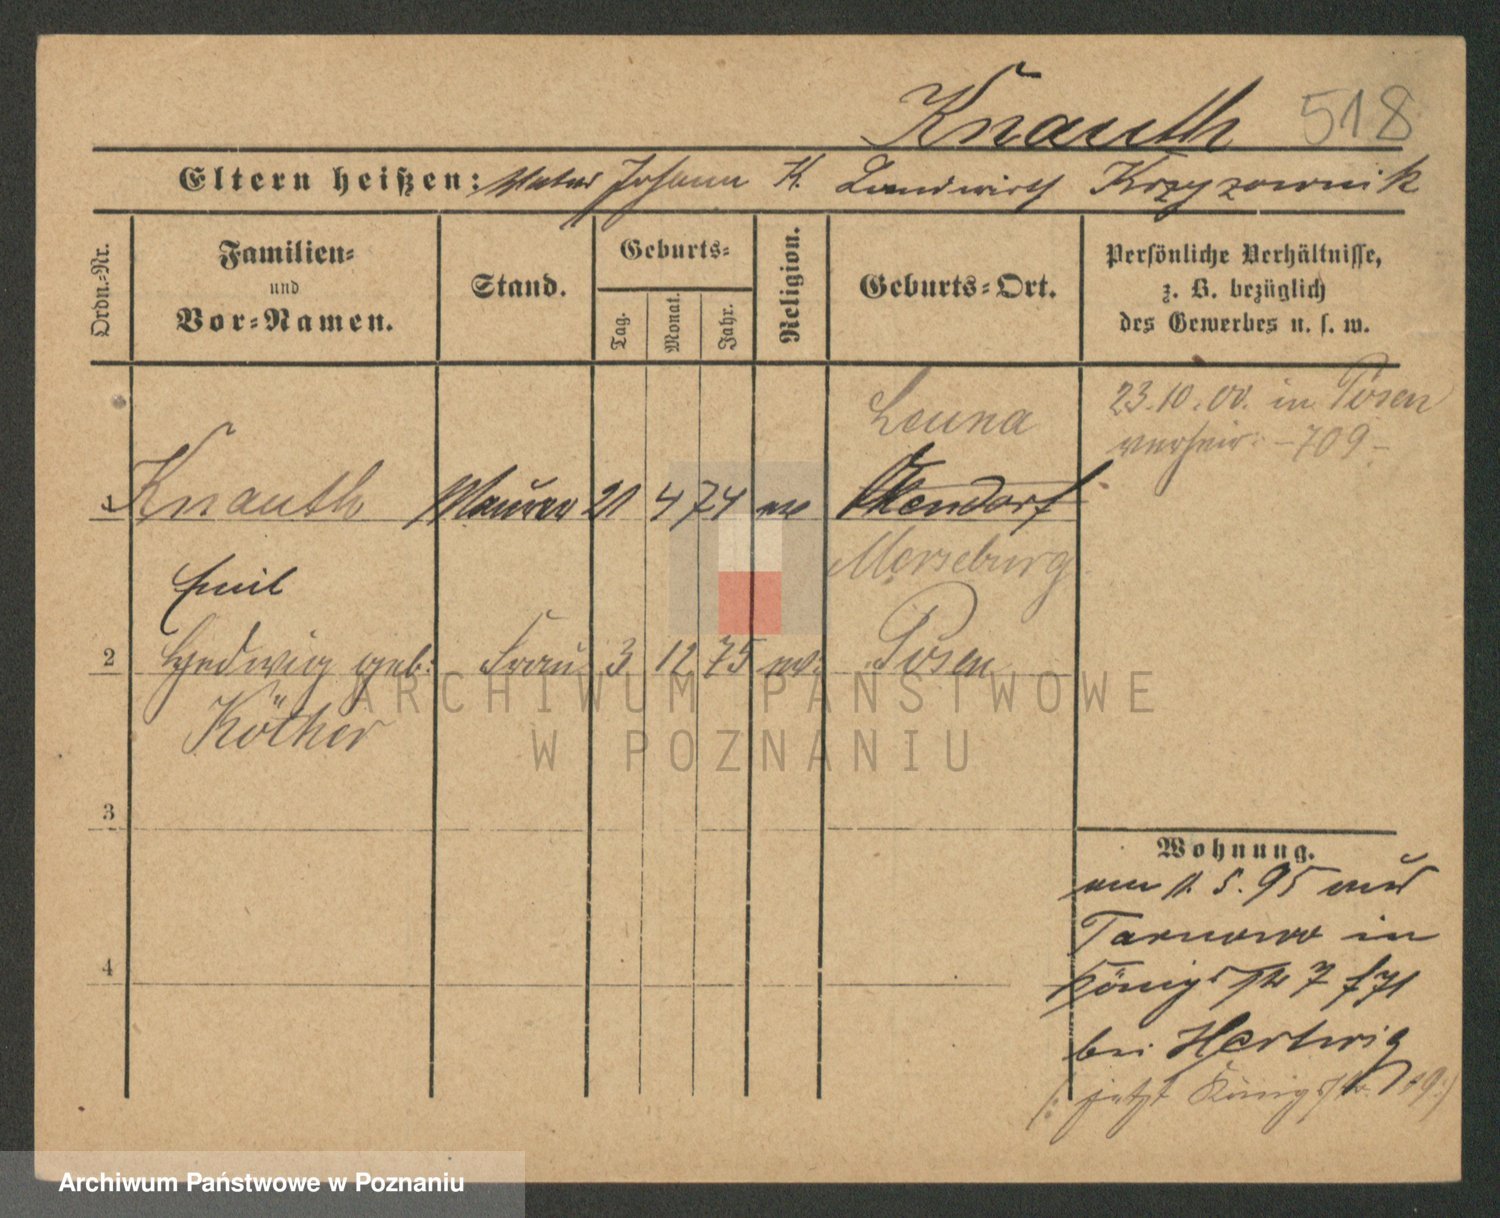 Knauth 518
Eltern heißen: Vater Johann K. Landwirth Krzyzownik
Ordn.-Nr.
Familien-
und
Vor-Namen.
Stand.
Geburts-
Tag.
Monat.
Jahr.
Religion.
Geburts-Ort.
Persönliche Verhältnisse,
z. B. bezüglich
des Gewerbes u. s. w.
23.10.00. in Posen
verheir: -709-
Leuna
1 Knauth Maurer 21 4 74 ev
Merseburg
Emil
2 Hedwig geb: Frau 3 12 75 ev: Posen
Köther
3
4
Wohnung.
am 11.5.95 aus
Tarnowo in
Königsstr 7
bei Hertwig
(: jetzt Königsstr. 19:)
ARCHIWUM PAŃSTWOWE
W POZNANIU
Archiwum Państwowe w Poznaniu